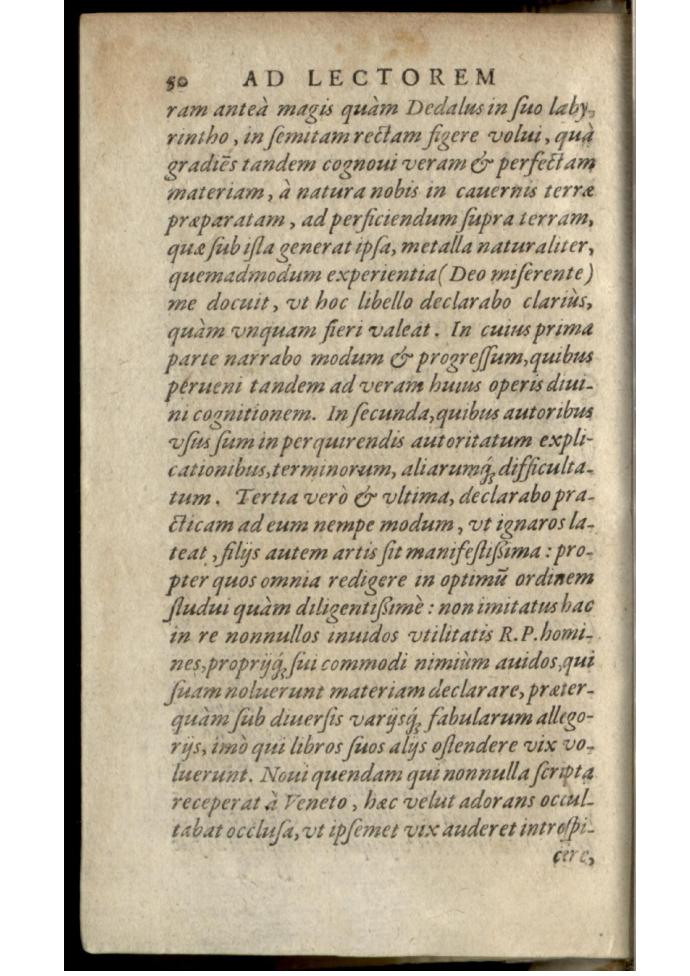 50 AD LECTOREM
ram anteà magis quàm Dedalus in ſuo laby-
rintho, in ſemitam rectam figere volui, quà
gradiẽs tandem cognoui veram & perfectam
materiam, à natura nobis in cauernis terræ
præparatam, ad perficiendum ſupra terram,
quæ ſub iſta generat ipſa, metalla naturaliter,
quemadmodum experientia (Deo miſerente)
me docuit, vt hoc libello declarabo clariùs,
quàm vnquam fieri valeat. In cuius prima
parte narrabo modum & progreſſum, quibus
pérueni tandem ad veram huius operis diui-
ni cognitionem. In ſecunda, quibus autoribus
vſus ſum in perquirendis autoritatum expli-
cationibus, terminorum, aliarumq́; difficulta-
tum. Tertia verò & vltima, declarabo pra-
cticam ad eum nempe modum, vt ignaros la-
teat, filijs autem artis ſit manifeſtiſsima: pro-
pter quos omnia redigere in optimũ ordinem
ſtudui quàm diligentiſsimè: non imitatus hac
in re nonnullos inuidos vtilitatis R.P. homi-
nes, proprijq́; ſui commodi nimiùm auidos, qui
ſuam noluerunt materiam declarare, præter-
quàm ſub diuerſis varijsq́; fabularum allego-
rijs, imò qui libros ſuos alijs oſtendere vix vo-
luerunt. Noui quendam qui nonnulla ſcripta
receperat à Veneto, hæc velut adorans occul-
tabat occluſa, vt ipſemet vix auderet introſpi-
cere,